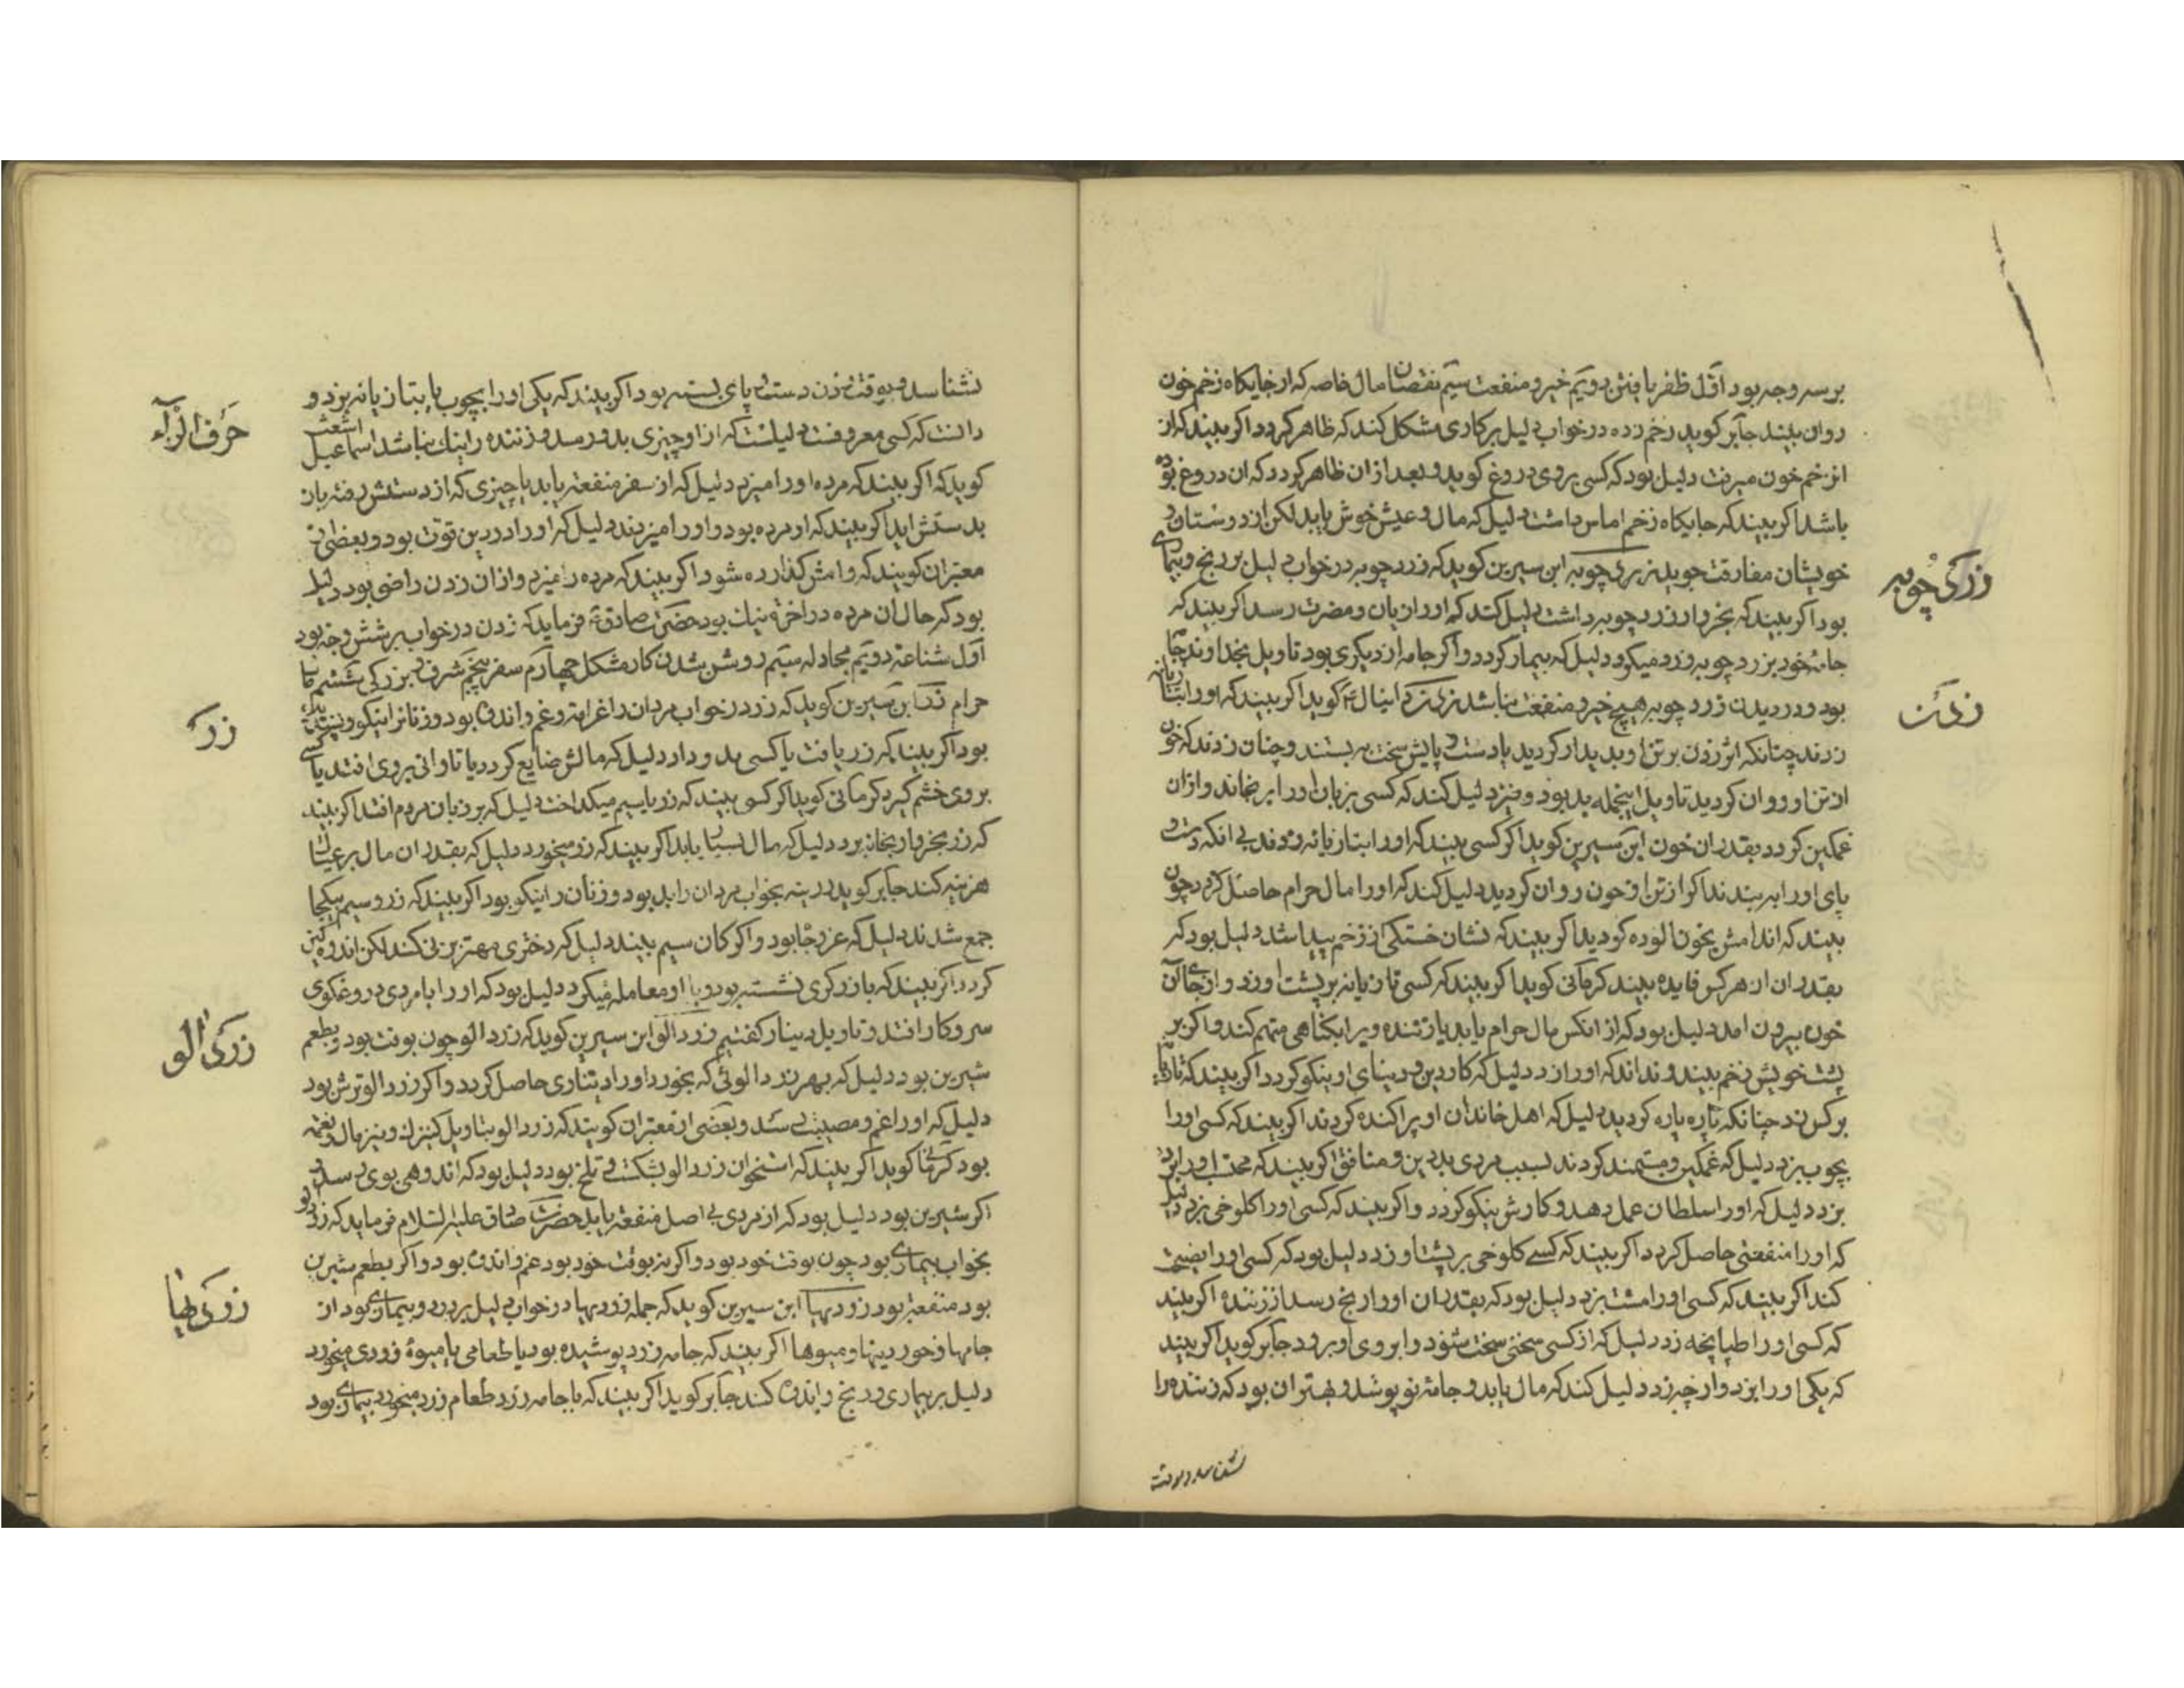 بر سه وجه بود اول ظفر یافتن دویم خیر و منفعت سیم نقصان مال خاصه که از جایکاه زخم خون
روان بیند جابر کوید زخم زده در خواب دلیل بر کاری مشکل کند که ظاهر کردد اکر بیند که از
از زخم خون میرفت دلیل بود که کسی بر وی دروغ کوید و بعد از آن ظاهر کردد که ان دروغ بوده
باشد اکر بیند که جایکاه زخم اماس داشت دلیل که مال و عیش خوش یابد لکن از دوستان و
خویشان مفارقت جوید زردچوبه ابن سیرین کوید که زردچوبه در خواب دلیل بر رنج و بیماری
زردچوبه
بود اکر بیند که بخروار زردچوبه داشت دلیل کند که او را زیان و مضرت رسد اکر بیند که
جامهٔ خود بزردچوبه زرد میکرد دلیل که بیمار کردد و اکر جامه از دیکری بود تاویل بخداوند جامه
بود و در دیدن زردچوبه هیچ خیر و منفعت نباشد زدن دانیال ع کوید اکر بیند که او را بتازیانه
زدن
زدند چنانکه اثر زدن بر تن او پدیدار کردید یا دست و پایش سخت به بستند و چنان زدند که خون
از تن او روان کردید تاویل اینجمله بد بود و نیز دلیل کند که کسی بزبان او را برنجاند و ازان
غمکین کردد بقدر ان خون ابن سیرین کوید اکر کسی بیند که او را بتازیانه زدند بی انکه دست و
پای او را به بندند اکر از تن او خون روان کردید دلیل کند که او را مال حرام حاصل کردد چون
بیند که اندامش بخون الوده کردید اکر بیند که نشان خستکی از زخم پیدا شد دلیل بود که
بقدر ان از هر کس فایده بیند کرمانی کوید اکر بیند که کسی تازیانه بر پشت او زد و از جای آن
خون بیرون امد دلیل بود که از انکس مال حرام یابد یا زننده ویرا بکناهی متهم کند و اکر بر
پشت خویش زخم بیند و نداند که او را زد دلیل که کار دین و دنیای او نیکو کردد اکر بیند که تازیانه
بر کس زد چنانکه پاره پاره کردید دلیل که اهل خاندان او پراکنده کردند اکر بیند که کسی او را
بچوب بزد دلیل که غمکین و مستمند کردند بسبب مردی بد دین و منافق اکر بیند که محتسب او را
بزد دلیل که او را سلطان عمل دهد و کارش نیکو کردد و اکر بیند که کسی او را کلوخی بزد دلیل
که او را منفعتی حاصل کردد اکر بیند که کسی کلوخی بر پشت او زد دلیل بود که کسی او را نصیحت
کند اکر بیند که کسی او را مشت بزد دلیل بود که بقدر ان او را رنج رسد از زننده اکر بیند
که کسی او را طپانچه زد دلیل که از کسی سخنی سخت شنود و ابروی او برود جابر کوید اکر بیند
که یکی او را بزد و از چه زد دلیل کند که مال یابد و جامهٔ نو پوشد و بهتر ان بود که زننده را
نشناسد و بوقت
نشناسد و بوقت زدن دست و پای بسته بود اکر بیند که یکی او را بچوب یا بتازیانه بزد و
حرف الزاء
دانست که کسی معروفست دلیلست که از او چیزی بدو رسد و زننده را نیک نباشد اسماعیل اشعث
کوید که اکر بیند که مرده او را میزد دلیل که از سفر منفعت یابد یا چیزی که از دستش رفته باز
بدستش اید اکر بیند که او مرده بود و او را میزدند دلیل که او را در دین قوت بود و بعضی از
معبران کویند که وامش کذارده شود اکر بیند که مرده را میزد و ازان زدن راضی بود دلیل
بود که حال ان مرده در اخرة نیک بود حضرت صادق ع فرماید که زدن در خواب بر شش وجه بود
اول شناعة دویم مجادله سیم روشن شدن کار مشکل چهارم سفر پنجم شرف و بزرکی ششم مال
حرام زر ابن سیرین کوید که زر در خواب مردان را غرامة و غم و اندوه بود و زنان را نیکو و پسندیده
زر
بود اکر بیند که زر یافت یا کسی بدو داد دلیل که مالش ضایع کردد یا تاوانی بر وی افتد یا کسی
بر وی خشم کیرد کرمانی کوید اکر کسی بیند که زر یا سیم میکداخت دلیل که بر زبان مردم افتد اکر بیند
که زر بخروار بخانه برد دلیل که مال بسیار یابد اکر بیند که زر میخورد دلیل که بقدر ان مال بر عیال
هزینه کند جابر کوید بخواب مردان را بد بود و زنان را نیکو بود اکر بیند که زر و سیم بیکجا
جمع شدند دلیل که عز و جاه بود و اکر کان سیم بیند دلیل که دختری مهتر بزنی کند لکن اندوه کین
کردد اکر بیند که با زرکری نشسته بود و با او معامله میکرد دلیل بود که او را با مردی دروغکوی
سر و کار افتد و تاویل دینار کفتیم زردالو ابن سیرین کوید که زردالو چون بوقت بود و بطعم
زردالو
شیرین بود دلیل که بهر زردالوئی که بخورد او را دیناری حاصل کردد و اکر زردالو ترش بود
دلیل که او را غم و مصیبت رسد و بعضی از معبران کویند که زردالو بتاویل کنیزک و نیز مال و نعمة
بود کرمانی کوید اکر بیند که استخوان زردالو بشکست و تلخ بود دلیل بود که اندوهی بوی رسد و
اکر شیرین بود دلیل بود که از مردی بی اصل منفعة یابد حضرت صادق علیه السلام فرماید که زردالو
بخواب بیماری بود چون بوقت خود بود و اکر نه بوقت خود بود غم و اندوه بود و اکر بطعم شیرین
بود منفعة بود زردیها ابن سیرین کوید که جمله زردیها در خواب دلیل بر درد و بیماری بود از
زردیها
جامها و خوردنیها و میوها اکر بیند که جامه زرد پوشیده بود یا طعامی یا میوهٔ زردی میخورد
دلیل بر بیماری و رنج و اندوه کند جابر کوید اکر بیند که با جامه زرد طعام زرد میخورد بیماری بود